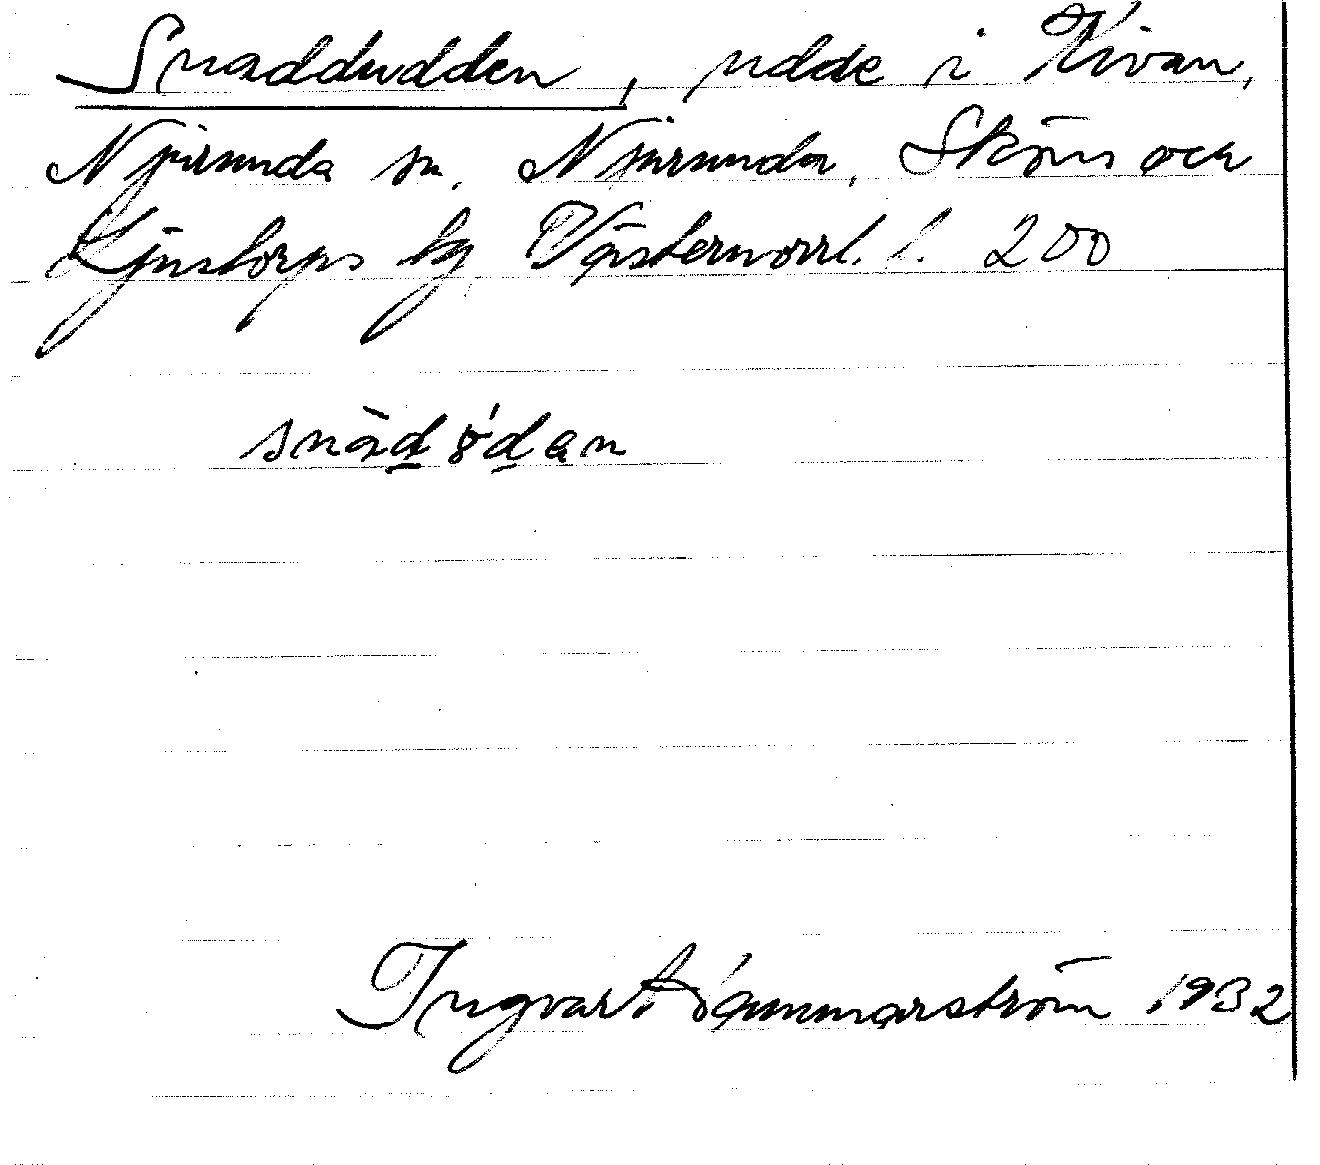 Snaddudden, udde i Kivan,
Njurunda sn. Njurunda, Sköns och
Ljustorps tg Västernorrl. l. 200
snàd̲ 8́d̲an
Ingvar Hammarström 1932